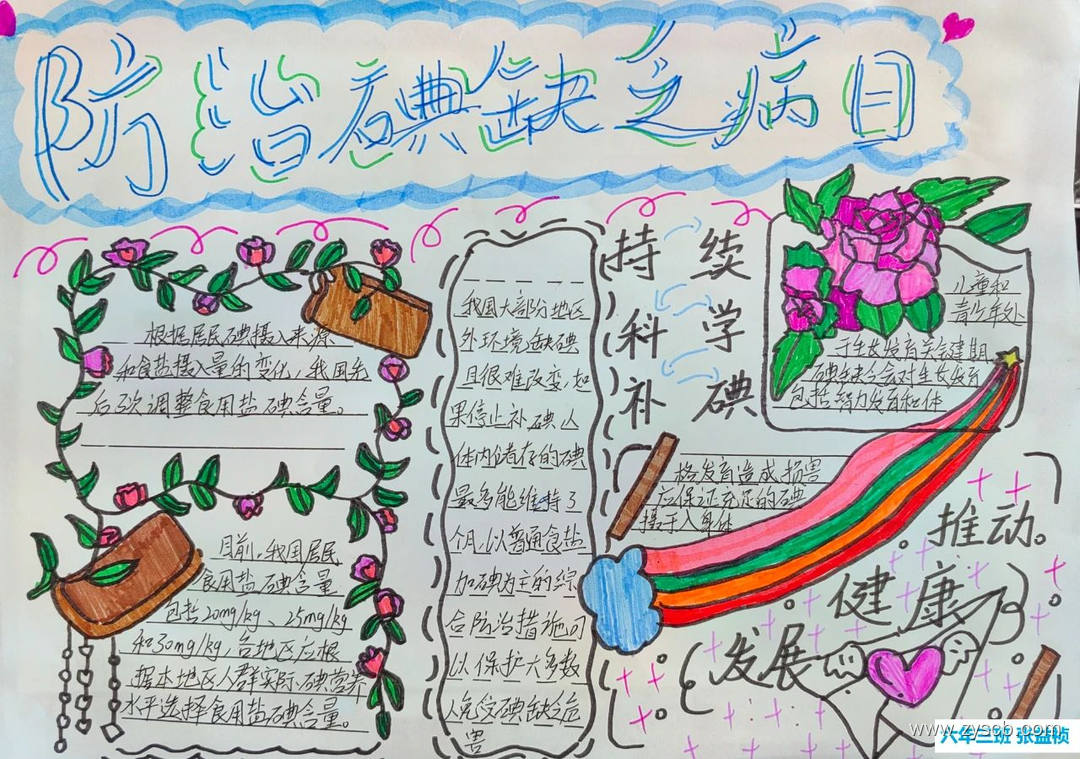 防治碘缺乏病日
根据居民碘摄入来源
和食盐摄入量的变化，我国先
后3次调整食用盐碘含量。
目前，我国居民
食用盐碘含量
包括20mg/kg、25mg/kg
和30mg/kg，各地区应根
据本地区人群实际碘营养
水平选择食用盐碘含量。
我国大部分地区
外环境缺碘
且很难改变，如
果停止补碘人
体内储存的碘
最多能维持3
个月，以普通食盐
加碘为主的综
合防治措施可
以保护大多数
人免受碘缺乏危
害
持续
科学
补碘
儿童和
青少年处
于生长发育关键期
碘缺乏会对生长发育
包括智力发育和体
格发育造成损害
应保证充足的碘
摄于入身体
推动。
健康
发展
www.zyscb.com
六年三班 张益桢